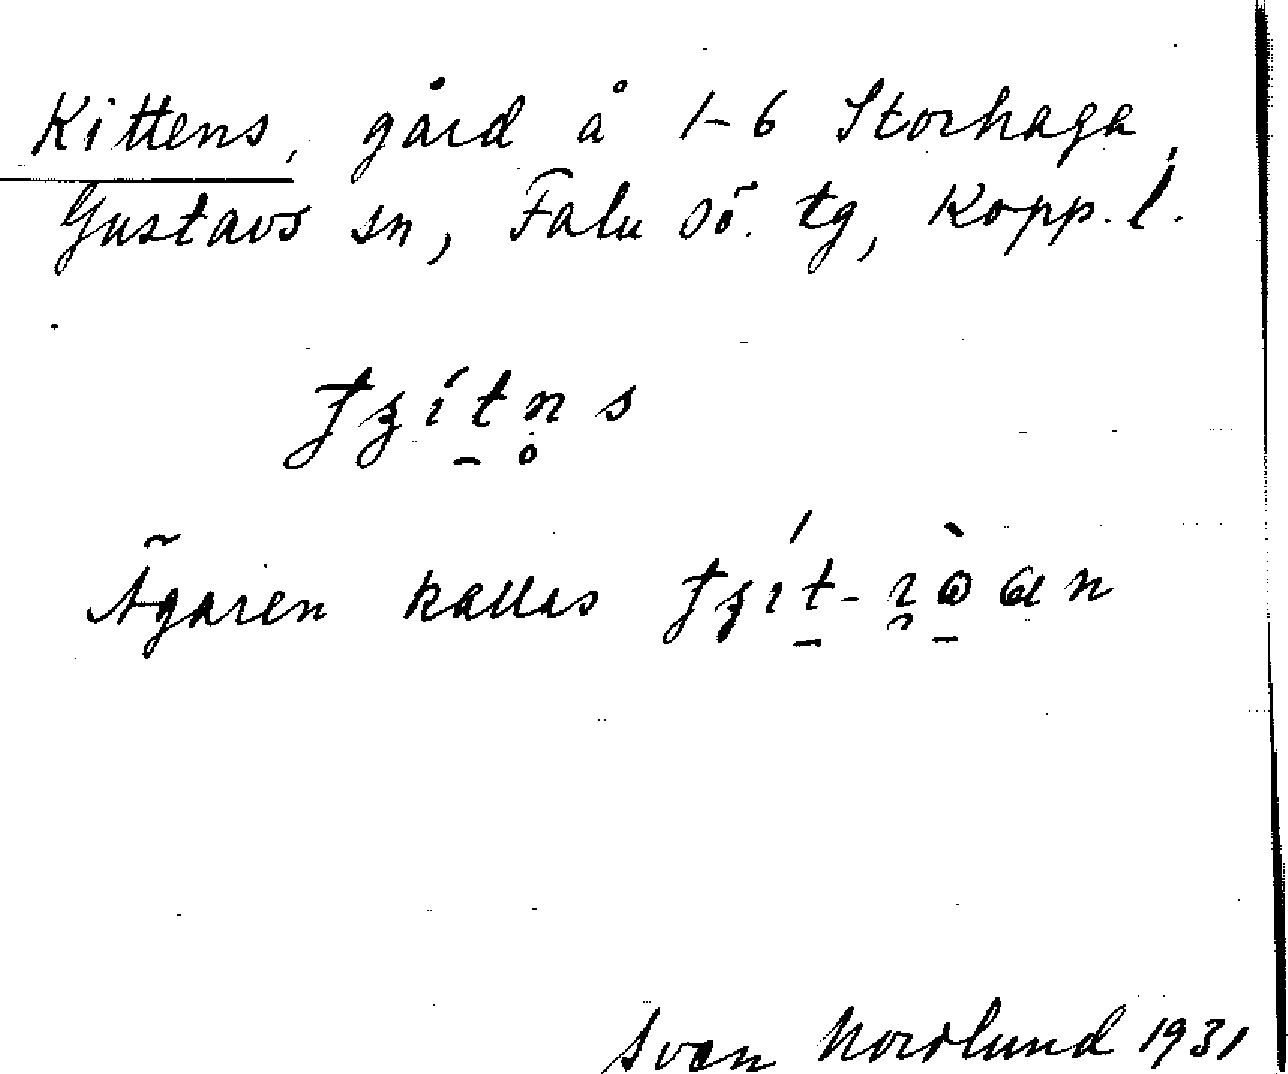 Kittens, gård å 1-6 Storhaga,
Gustavs sn, Falu sö. tg, Kopp. l.
Ägaren kallas
Sven Nordlund 1931